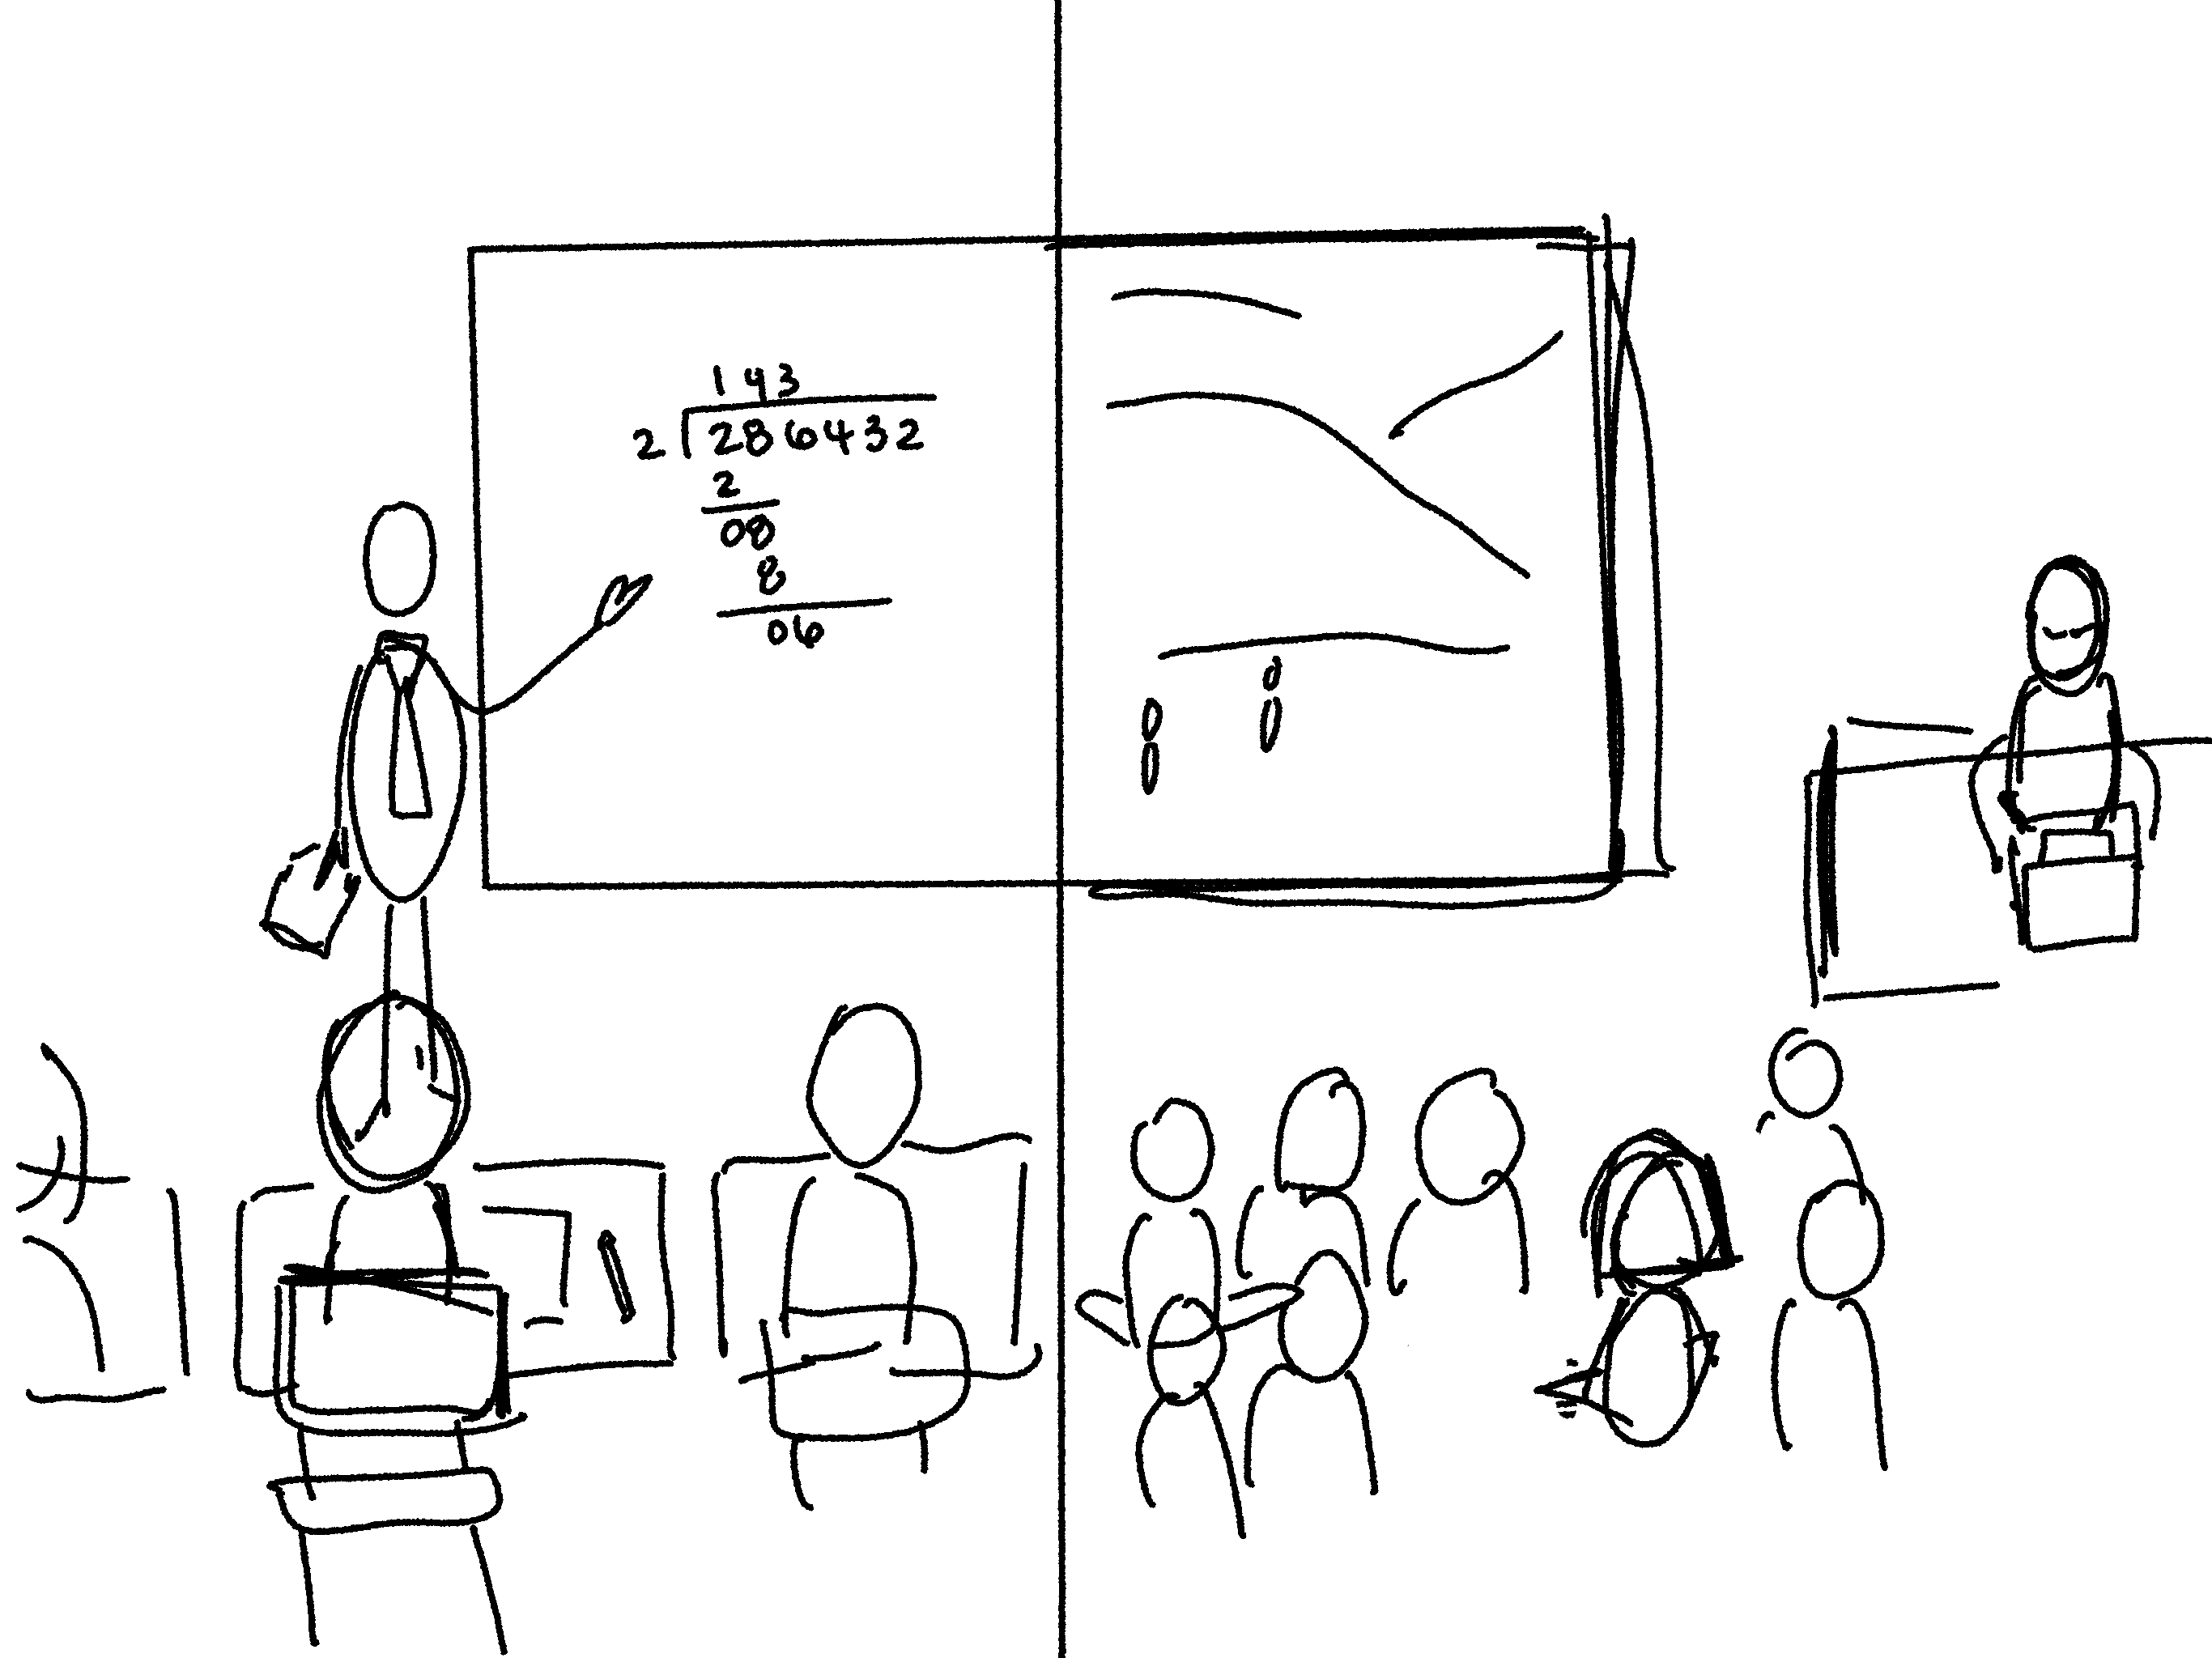 143
2 286432
2
08
8
06